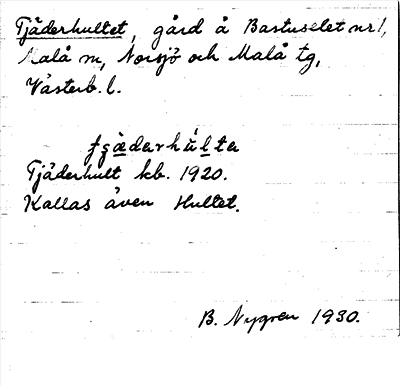 Tjäderhultet, gård å Bastuselet nr 1,
Malå sn, Norsjö och Malå tg,
Västerb. l.
Tjäderhult kb. 1920.
Kallas även Hultet.
B. Nygren 1930.